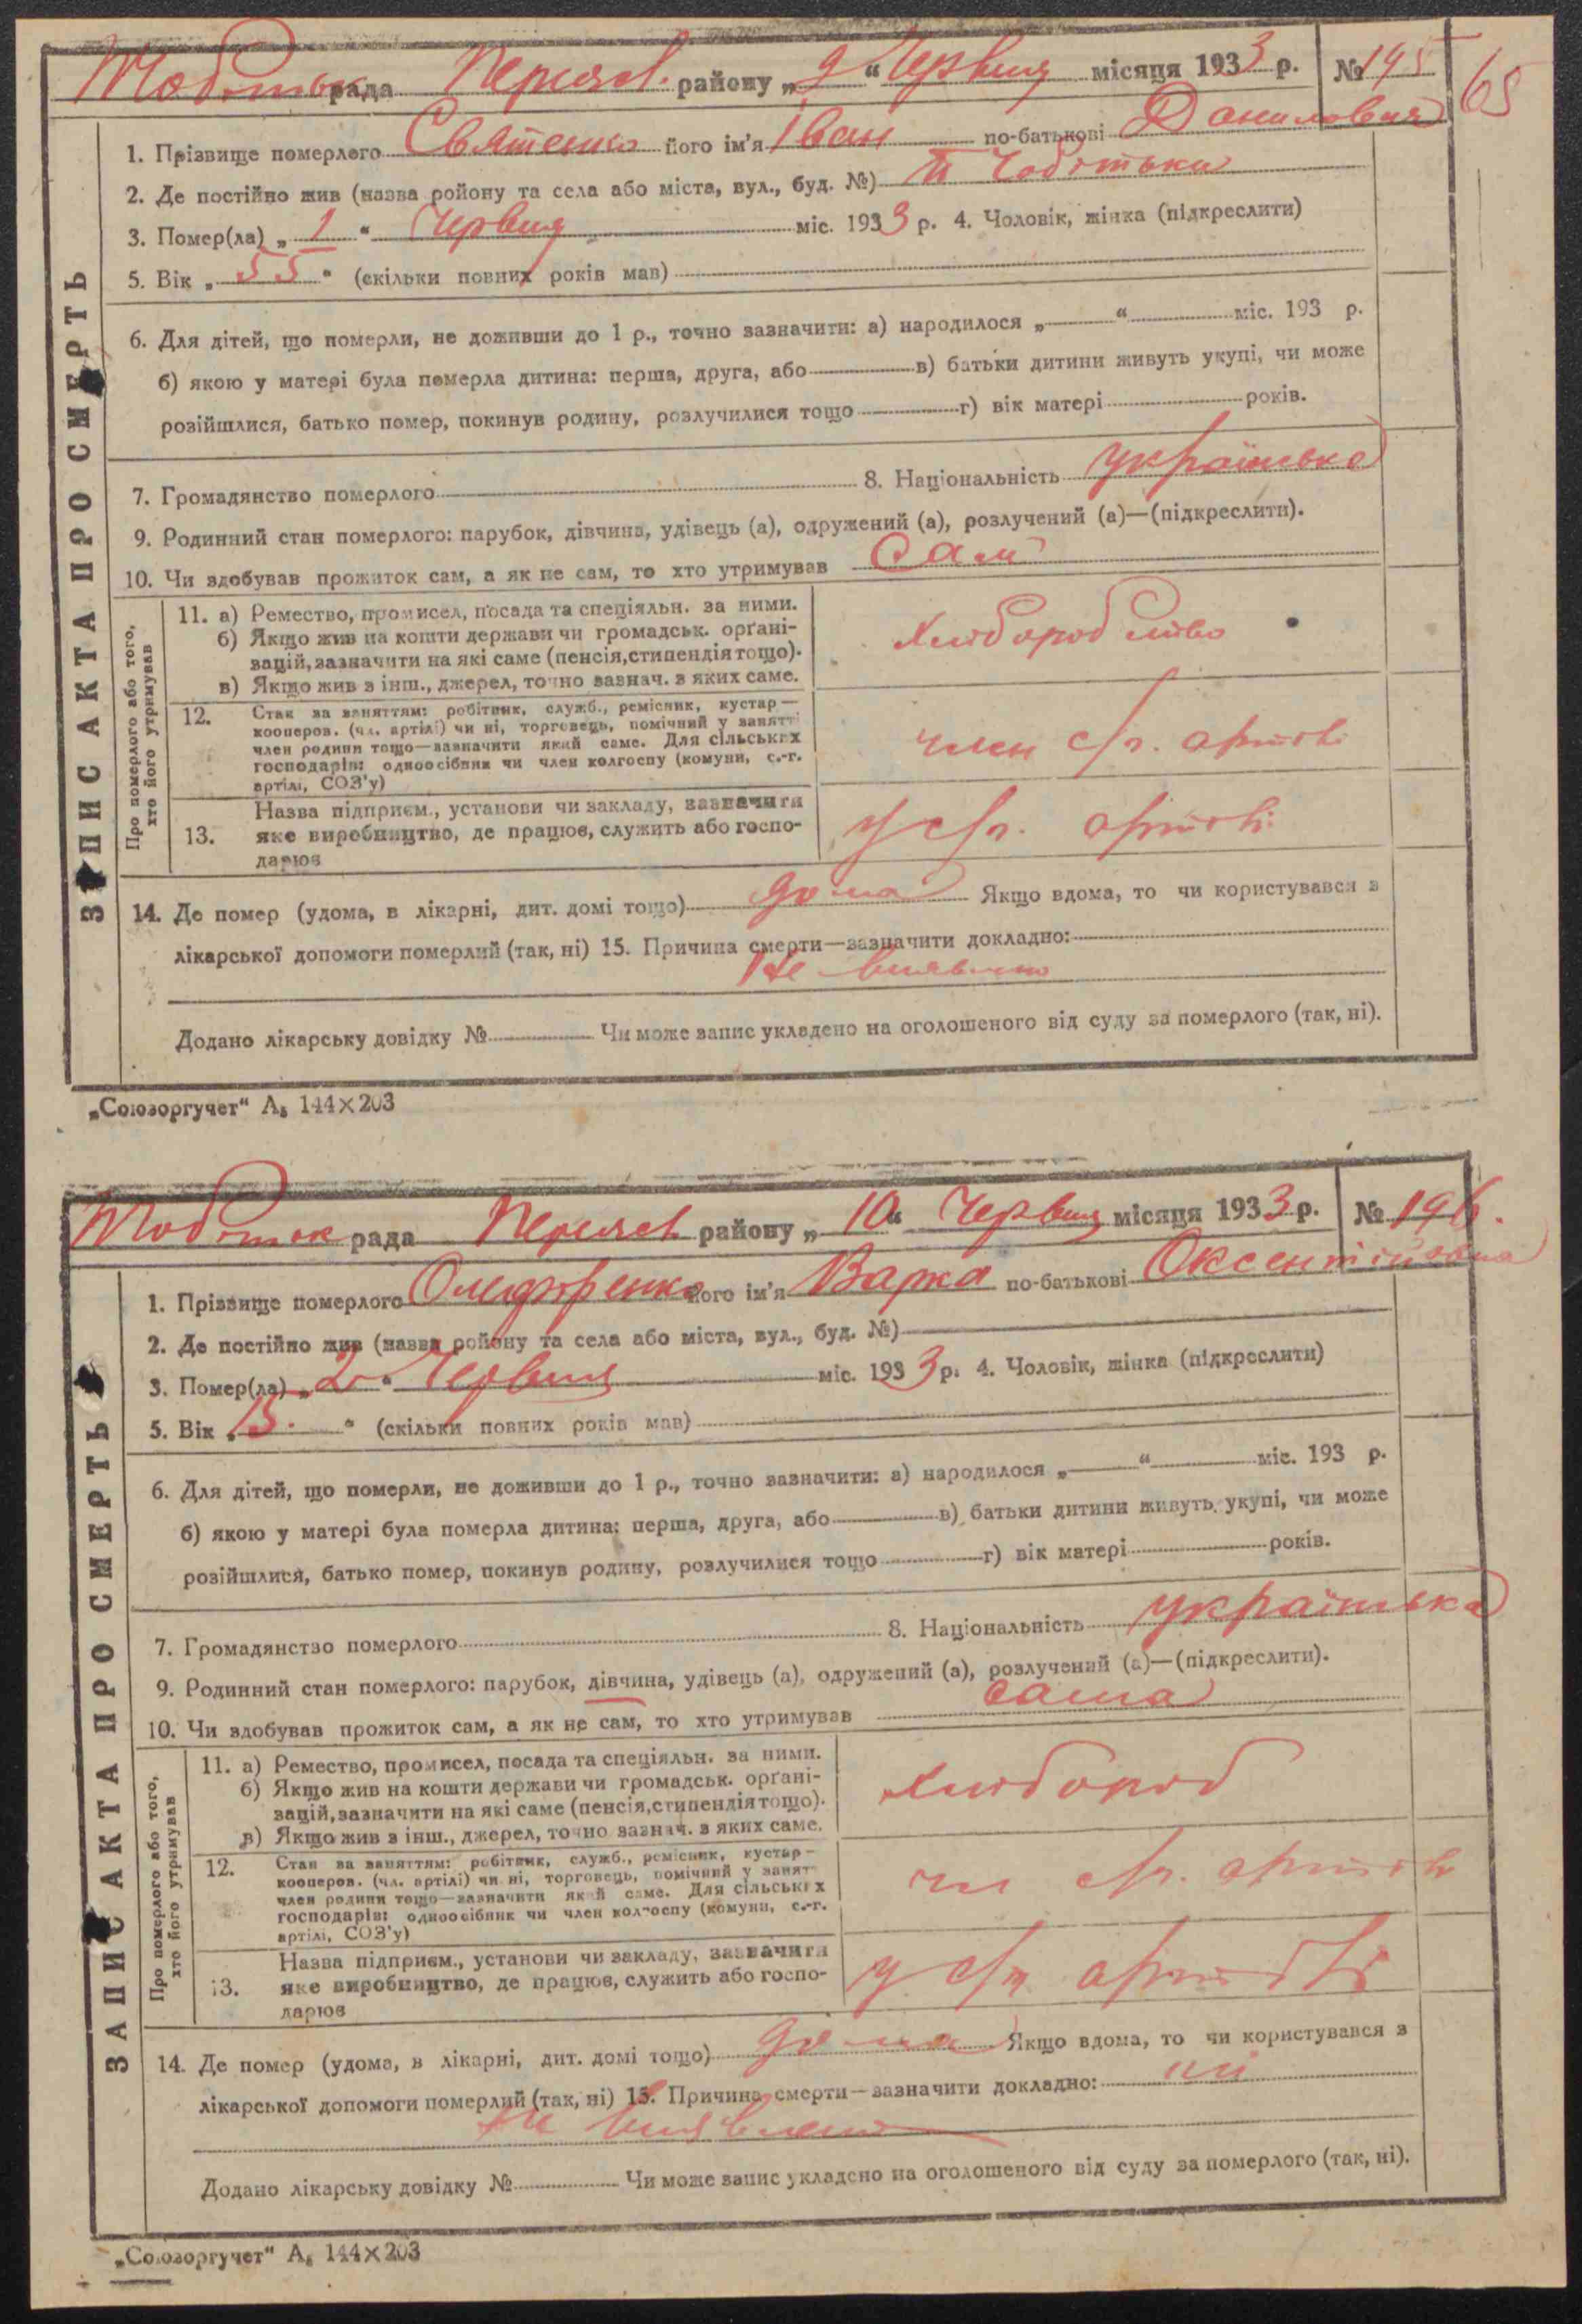 рада Переясл. району „ 9 “ Червня місяця 1933 р. № 195
65
1. Прізвище померлого Святенко його ім'я Іван по-батькові Данилович
2. Де постійно жив (назва ройону та села або міста, вул., буд. №)
3. Помер(ла) „ 1 “ Червня міс. 1933 р. 4. Чоловік, жінка (підкреслити)
5. Вік „ 55 “ (скільки повних років мав)
6. Для дітей, що померли, не доживши до 1 р., точно зазначити: а) народилося „ “ міс. 193 р.
б) якою у матері була померла дитина: перша, друга, або в) батьки дитини живуть укупі, чи може
розійшлися, батько помер, покинув родину, розлучилися тощо г) вік матері років.
7. Громадянство померлого 8. Національність українська
9. Родинний стан померлого: парубок, дівчина, удівець (а), одружений (а), розлучений (а)—(підкреслити).
10. Чи здобував прожиток сам, а як не сам, то хто утримував Сам
ЗАПИС АКТА ПРО СМЕРТЬ
Про померлого або того,
хто його утримував
11. а) Ремество, промисел, посада та спеціяльн. за ними.
б) Якщо жив на кошти держави чи громадськ. орґані-
зацій, зазначити на які саме (пенсія, стипендія тощо).
в) Якщо жив з інш., джерел, точно зазнач. з яких саме.
Хліборобство
12. Стан за заняттям: робітник, служб., ремісник, кустар—
кооперов. (чл. артілі) чи ні, торговець, помічний у занятті
член родини тощо—зазначити який саме. Для сільських
господарів: одноосібник чи член колгоспу (комуни, с.-г.
артілі, СОЗ'у)
член с/г. артілі
13. Назва підприєм., установи чи закладу, зазначити
яке виробництво, де працює, служить або госпо-
дарює
у с/г. артілі
14. Де помер (удома, в лікарні, дит. домі тощо) дома Якщо вдома, то чи користувався з
лікарської допомоги померлий (так, ні) 15. Причина смерти—зазначити докладно:
Не виявлено
Додано лікарську довідку № Чи може запис укладено на оголошеного від суду за померлого (так, ні).
„Союзоргучет“ А₅ 144×203
рада Переясл району „ 10 “ Червня місяця 1933 р. № 196.
1. Прізвище померлого Олефіренко його ім'я Варка по-батькові Оксентійовна
2. Де постійно жив (назва ройону та села або міста, вул., буд. №)
3. Помер(ла) „ 2 “ Червня міс. 1933 р. 4. Чоловік, жінка (підкреслити)
5. Вік „ “ (скільки повних років мав)
6. Для дітей, що померли, не доживши до 1 р., точно зазначити: а) народилося „ “ міс. 193 р.
б) якою у матері була померла дитина: перша, друга, або в) батьки дитини живуть укупі, чи може
розійшлися, батько помер, покинув родину, розлучилися тощо г) вік матері років.
7. Громадянство померлого 8. Національність українська
9. Родинний стан померлого: парубок, дівчина, удівець (а), одружений (а), розлучений (а)—(підкреслити).
10. Чи здобував прожиток сам, а як не сам, то хто утримував сама
ЗАПИС АКТА ПРО СМЕРТЬ
Про померлого або того,
хто його утримував
11. а) Ремество, промисел, посада та спеціяльн. за ними.
б) Якщо жив на кошти держави чи громадськ. орґані-
зацій, зазначити на які саме (пенсія, стипендія тощо).
в) Якщо жив з інш., джерел, точно зазнач. з яких саме.
Хлібороб
12. Стан за заняттям: робітник, служб., ремісник, кустар—
кооперов. (чл. артілі) чи ні, торговець, помічний у занят
член родини тощо—зазначити який саме. Для сільських
господарів: одноосібник чи член колгоспу (комуни, с.-г.
артілі, СОЗ'у)
чл с/г. артілі
13. Назва підприєм., установи чи закладу, зазначити
яке виробництво, де працює, служить або госпо-
дарює
у с/г артілі
14. Де помер (удома, в лікарні, дит. домі тощо) дома Якщо вдома, то чи користувався з
лікарської допомоги померлий (так, ні) 15. Причина смерти—зазначити докладно: ні
не виявлено
Додано лікарську довідку № Чи може запис укладено на оголошеного від суду за померлого (так, ні).
„Союзоргучет“ А₅ 144×203